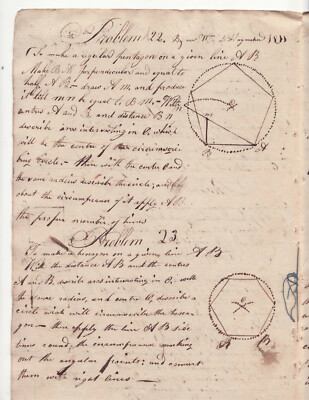 Problem 22. By
To make a regular pentagon on a given line A B
Make B m Perpendicular and equal to
half A B:- draw A m, and produce
it till m n be equal to B m.- With
centers A and B and distance B n
describe arcs intersecting in C, which
will be the centre of the circumscri-
bing circle:- then with the center C and
the same radius describe the circle; and
about the circumference of it apply A B
the proper number of times
Problem 23.
To make a hexagon on a given line A B
With the distance A B and the centers
A and B, describe arcs intersecting in C; with
the same radius, and centre C, describe a
circle which will circumscribe the hexa-
gon – then apply the line A B six
times round, the circumference marking
out the angular points; and connect
them with right lines –